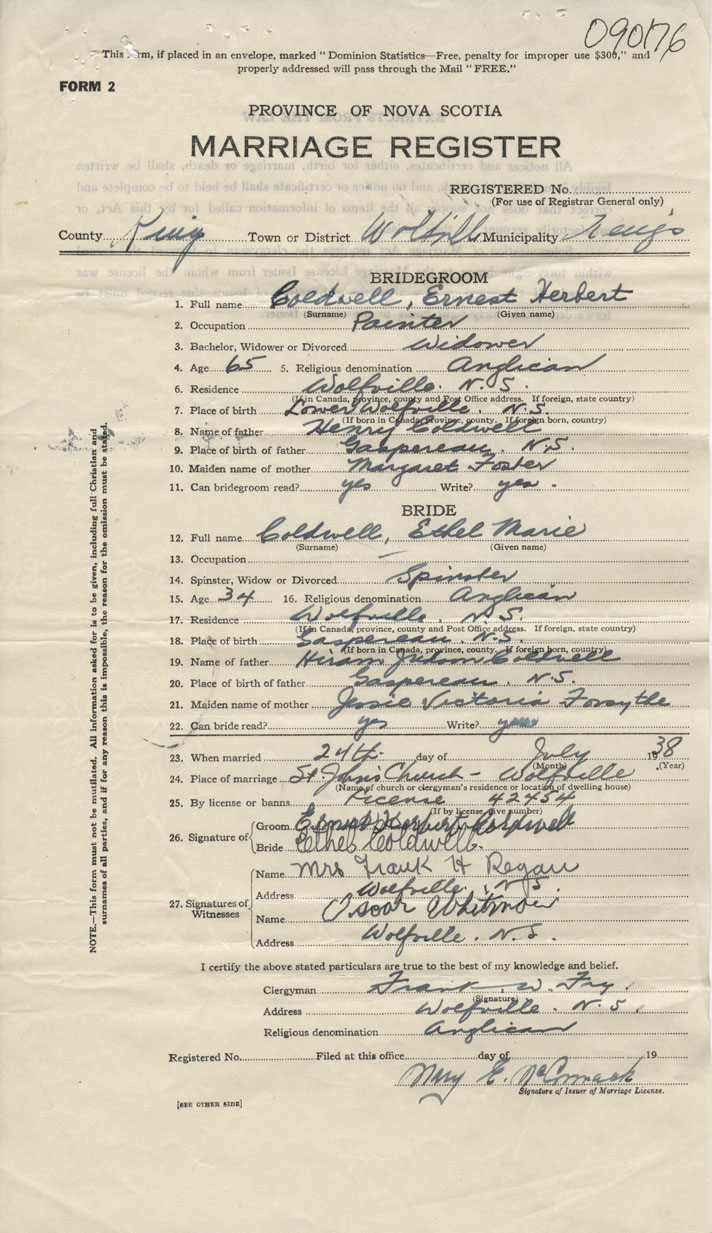 090176
This Form, if placed in an envelope, marked "Dominion Statistics—Free, penalty for improper use $300," and
properly addressed will pass through the Mail "FREE."
FORM 2
PROVINCE OF NOVA SCOTIA
MARRIAGE REGISTER
REGISTERED No.
(For use of Registrar General only)
County Kings Town or District Wolfville Municipality Kings
BRIDEGROOM
1. Full name Coldwell, Ernest Herbert
(Surname) (Given name)
2. Occupation Painter
3. Bachelor, Widower or Divorced Widower
4. Age 65 5. Religious denomination Anglican
6. Residence Wolfville. N.S.
(If in Canada, province, county and Post Office address. If foreign, state country)
7. Place of birth Lower Wolfville. N.S.
(If born in Canada, province, county. If foreign born, country)
8. Name of father Henry Coldwell
9. Place of birth of father Gaspereau. N.S.
10. Maiden name of mother Margaret Foster
11. Can bridegroom read? yes Write? yes.
BRIDE
12. Full name Coldwell, Ethel Marie
(Surname) (Given name)
13. Occupation —
14. Spinster, Widow or Divorced Spinster
15. Age 34 16. Religious denomination Anglican
17. Residence Wolfville. N.S.
(If in Canada, province, county and Post Office address. If foreign, state country)
18. Place of birth Gaspereau. N.S.
(If born in Canada, province, county. If foreign born, country)
19. Name of father Hiram Judson Coldwell
20. Place of birth of father Gaspereau. N.S.
21. Maiden name of mother Jessie Victoria Forsythe
22. Can bride read? yes Write? yes
23. When married 24th day of July 1938
(Month) (Year)
24. Place of marriage St John's Church – Wolfville
(Name of church or clergyman's residence or location of dwelling house)
25. By license or banns License 42454
(If by license give number)
26. Signature of Groom Ernest Herbert Coldwell
Bride Ethel Coldwell.
27. Signatures of Witnesses
Name Mrs Frank H Regan
Address Wolfville. N.S.
Name Oscar Whitmore
Address Wolfville. N.S.
I certify the above stated particulars are true to the best of my knowledge and belief.
Clergyman Frank W. Fry.
(Signature)
Address Wolfville. N.S.
Religious denomination Anglican
Registered No. Filed at this office day of 19
Mary E. McCormack
Signature of Issuer of Marriage License.
[SEE OTHER SIDE]
NOTE.—This form must not be mutilated. All information asked for is to be given, including full Christian and
surnames of all parties, and if for any reason this is impossible, the reason for the omission must be stated.